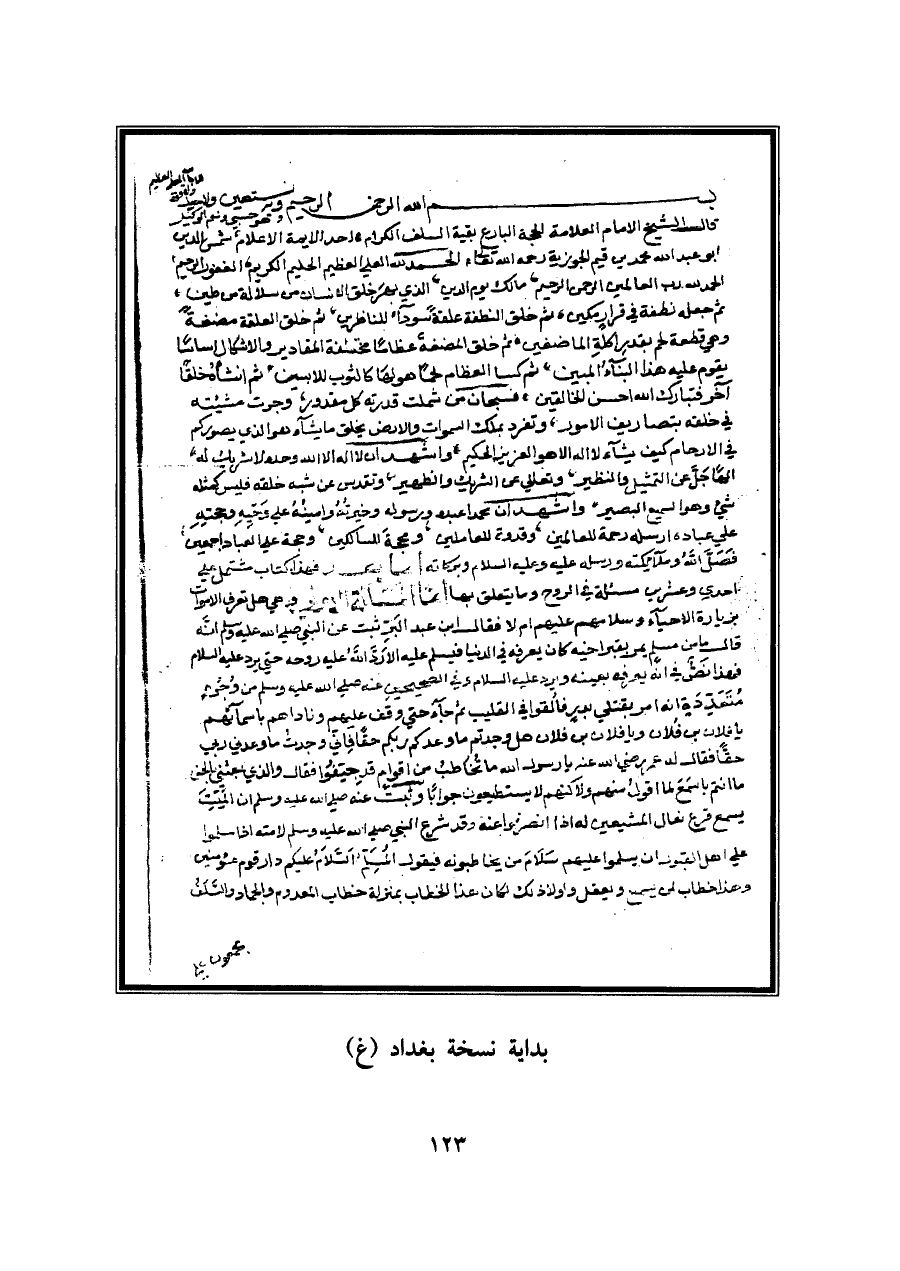 بسم الله الرحمن الرحيم وبه نستعين ولا حول ولا قوة الا بالله العلي العظيم
وهو حسبي ونعم الوكيل
قال الشيخ الامام العلامة الحجة البارع بقية السلف الكرام احد الايمة الاعلام شمس الدين
ابو عبد الله محمد بن قيم الجوزية رحمه الله تعالى الحمد لله العلي العظيم الحليم الكريم الغفور الرحيم
الحمد لله رب العالمين الرحمن الرحيم مالك يوم الدين الذي خلق الانسان من سلالة من طين
ثم جعله نطفة في قرار مكين ثم خلق النطفة علقة سوداً للناظرين ثم خلق العلقة مضغةً
وهي قطعة لحم بقدر اكلة الماضغين ثم خلق المضغة عظاما مختلفة المقادير والاشكال اساسًا
يقوم عليه هذا البنآء المبين ثم كسا العظام لحمًا هو لها كالثوب للابسين ثم انشأهُ خلقًا
آخر فتبارك الله احسن الخالقين فسبحان من شملت قدرته كل مقدور وجرت مشيئته
في خلقه بتصاريف الامور وتفرد بملك السموات والارض يخلق ما يشآء هو الذي يصوركم
في الارحام كيف يشآء لا اله الا هو العزيز الحكيم واشهد ان لا اله الا الله وحده لا شريك له
الهًا جَلَّ عن التمثيل والنظير وتعالي عن الشريك والظهير وتقدس عن شبه خلقه فليس كمثله
شيء وهو السميع البصير واشهد ان محمدا عبده ورسوله وخيرتهُ وامينهُ علي وحيه وحجته
علي عباده ارسله رحمة للعالمين وقدوة للعاملين ومحجة للسالكين وحجة علي العباد اجمعين
فصلَّ اللهُ وملآيكته ورسله عليه وعليه السلام وبركاته أما بعد فهذا كتاب مشتمل علي
احدي وعشرين مسئلة في الروح وما يتعلق بها أما المسئالة الاولي فهي هل تعرف الاموات
بزيارة الاحيآء وسلامهم عليهم ام لا فقال ابن عبد البرّ ثبت عن النبي صلي الله عليه وسلم انه
قال ما من مسلم يمر بقبر اخيه كان يعرفه في الدنيا فيسلم عليه الا ردَّ اللهُ عليه روحه حتي يرد عليه السلام
فهذا نصٌّ في انه يعرفه بعينه ويرد عليه السلام وفي الصحيحين عنه صلي الله عليه وسلم من وجوهٍ
مُتعدِّدة انه امر بقتلي بدر فالقوا في القليب ثم جآء حتي وقف عليهم وناداهم باسمآئهم
يا فلان بن فلان ويا فلان بن فلان هل وجدتم ما وعدكم ربكم حقًا فاني وجدت ما وعدني ربي
حقًا فقال له عمر رضي الله عنه يا رسول الله ما تخاطب من اقوام قد جيفوا فقال والذي بعثني بالحق
ما انتم باسمع لما اقول منهم ولاكنهم لا يستطيعون جوابًا وثبت عنه صلي الله عليه وسلم ان الميت
يسمع قرع نعال المشيعين له اذا انصرفوا عنه وقد شرع النبي صلي الله عليه وسلم لامته اذا سلموا
علي اهل القبور ان يسلموا عليهم سلام من يخاطبونه فيقول المسلم السلام عليكم دار قوم مؤمنين
وهذا خطاب لمن يسمع ويعقل ولولا ذلك لكان هذا الخطاب بمنزلة خطاب المعدوم والجماد والسلف
بداية نسخة بغداد (غ)
١٢٣